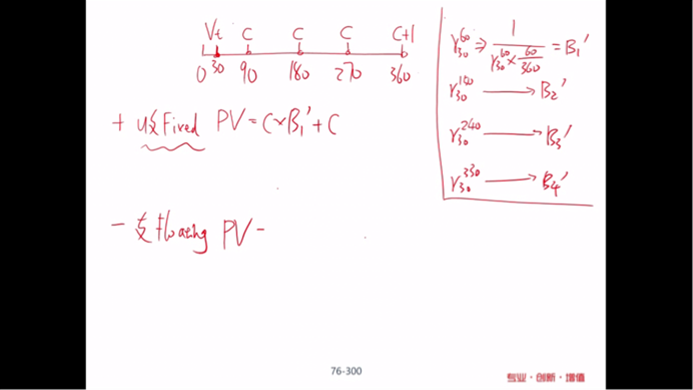 Vt C C C C+1
0 30 90 180 270 360
+ 收 Fixed PV = C×B₁' + C
- 支 floating PV -
γ₃₀⁶⁰ ⇒ 1 / (γ₃₀⁶⁰ × 60/360) = B₁'
γ₃₀¹⁵⁰ → B₂'
γ₃₀²⁴⁰ → B₃'
γ₃₀³³⁰ → B₄'
76-300
专业·创新·增值